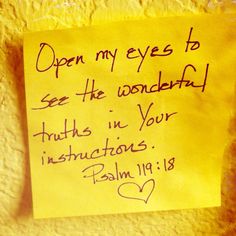 Open my eyes to
see the wonderful
truths in Your
instructions.
Psalm 119:18